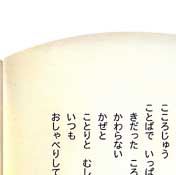 こころじゅう
ことばで いっぱ
きだった ころ
かわらない
かぜと
ことりと むし
いつも
おしゃべりして